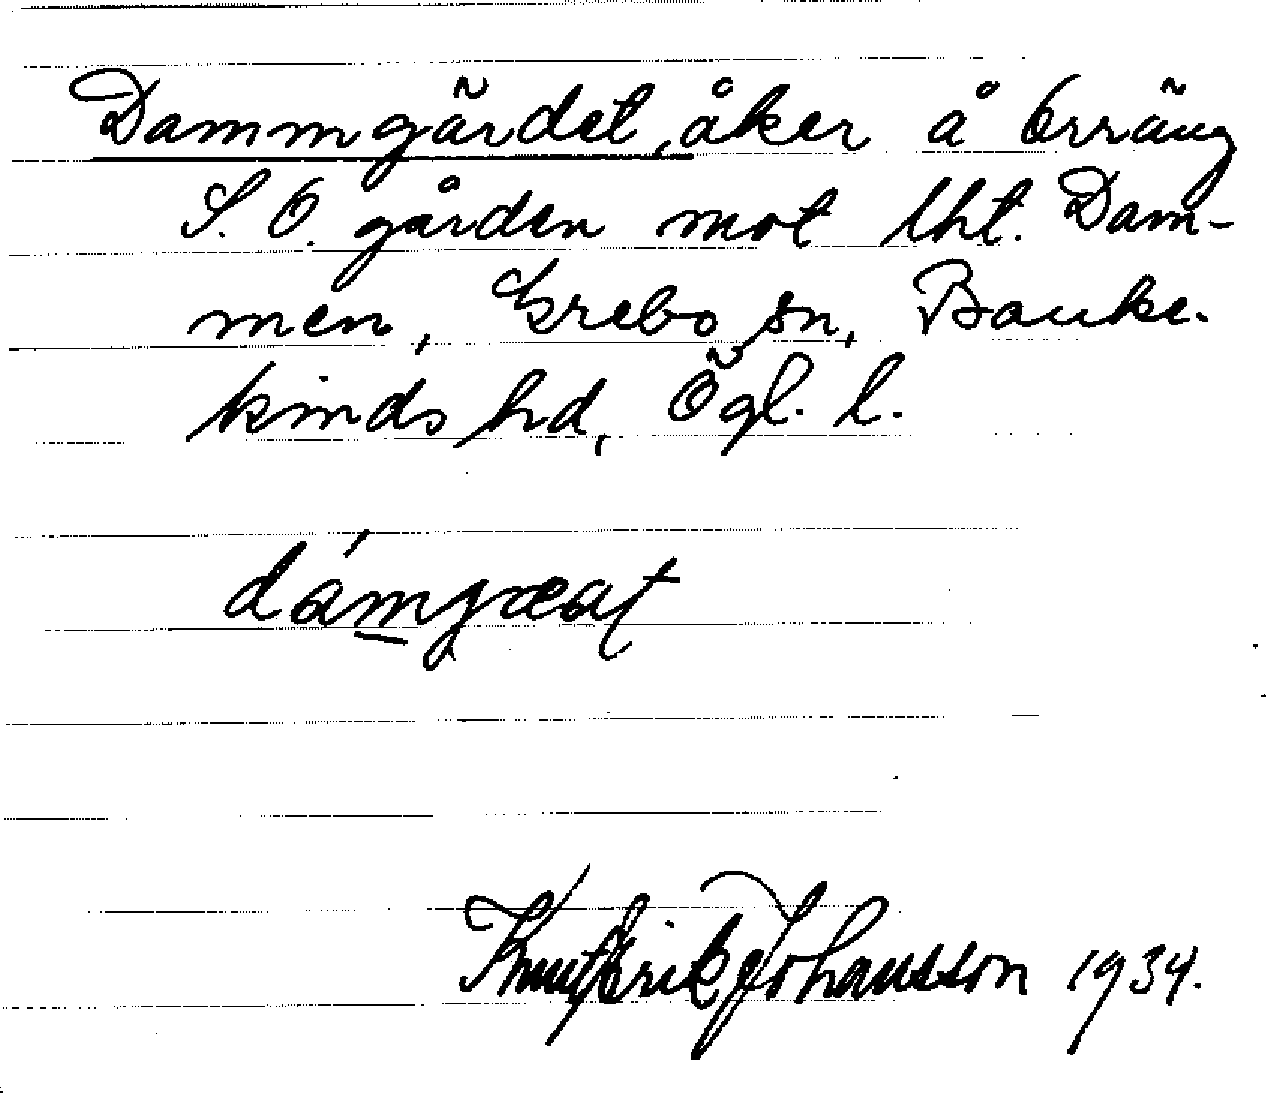 Dammgärdet, åker å Orräng
S. O. gården mot lht. Dam-
men, Grebo sn, Banke-
kinds hd, Ögl. l.
Knut Erik Johansson 1934.